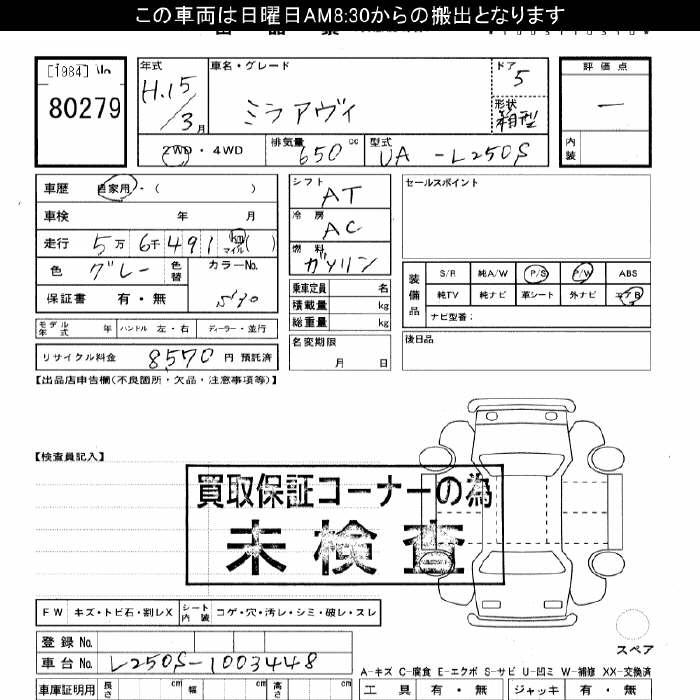 この車両は日曜日AM8:30からの搬出となります
[1984]
80279
年式
H.15/3月
車名・グレード
ミラアヴィ
ドア
5
形状
箱型
評価点
―
内装
2WD・4WD
排気量
650cc
型式
UA-L250S
車歴 自家用・( )
車検 年 月
走行 5万6千491 km マイル ( )
色 グレー 色替
カラーNo.
保証書 有・無
シフト
AT
冷房
AC
燃料
ガソリン
乗車定員 名
積載量 kg
総重量 kg
セールスポイント
装備品
S/R 純A/W P/S P/W ABS
純TV 純ナビ 革シート 外ナビ エアB
ナビ型番:
モデル年式 年 ハンドル 左・右 ディーラー・並行
名変期限
月 日
後日品
リサイクル料金 8570 円 預託済
【出品店申告欄(不良箇所・欠品・注意事項等)】
【検査員記入】
買取保証コーナーの為
未検査
FW キズ・トビ石・割レX シート内装 コゲ・穴・汚レ・シミ・破レ・スレ
スペア
登録No.
車台No. L250S-1003448
A-キズ C-腐食 E-エクボ S-サビ U-凹ミ W-補修 XX-交換済
車庫証明用 長さ cm 幅 cm 高さ cm
工具 有・無 ジャッキ 有・無